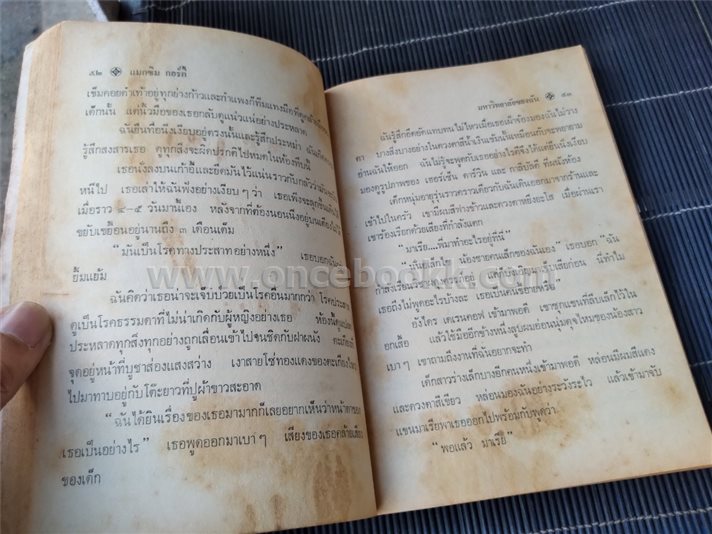 ๕๒ แมกซิม กอร์กี้
เข็มคอยต่ำเท้าอยู่ทุกย่างก้าวและกำแพงก็ทิ่มแทงมือที่
เด็กนั้น แต่นิ้วมือของเธอกลับดูแน่วแน่อย่างประหลาด
ฉันยืนที่อนึ่งเงียบอยู่ตรงนั้นและรู้สึกประหม่า
รู้สึกสงสารเธอ ดูทุกสิ่งจะผิดปรกติไปหมดในห้องที่บนี้
เธอนั่งลงบนเก้าอี้และยึดมันไว้แน่นราวกับกลัวว่า
หนีไป เธอเล่าให้ฉันฟังอย่างเงียบๆ ว่า เธอเพิ่ง
เมื่อราว ๔-๕ วันมานี้เอง หลังจากที่ต้องนอนนิ่งอยู่บนเตียง
ขยับเขยื้อนอยู่นานถึง ๓ เดือนเต็ม
"มันเป็นโรคทางประสาทอย่างหนึ่ง" เธอบอก
ยิ้มแย้ม
ฉันคิดว่าเธอน่าจะเจ็บป่วยเป็นโรคอื่นมากกว่า โรคประสาท
ดูเป็นโรคธรรมดาที่ไม่น่าเกิดกับผู้หญิงอย่างเธอ
ประหลาดทุกสิ่งทุกอย่างถูกเลื่อนเข้าไปจนชิดกับฝาผนัง
จุดอยู่หน้าที่บูชาส่องแสงสว่าง เงาสายโซ่ทองแดงของตะเกียง
ไปมาทาบอยู่กับโต๊ะยาวที่ปูผ้าขาวสะอาด
"ฉันได้ยินเรื่องของเธอมามากก็เลยอยากเห็นว่าหน้าตาของ
เธอเป็นอย่างไร" เธอพูดออกมาเบาๆ เสียงของเธอคล้ายเสียง
ของเด็ก
มหาวิทยาลัยของฉัน ๕๓
ฉันรู้สึกอึดอัดแทบทนไม่ไหวเมื่อเธอเฝ้าจ้องมองฉันไม่วาง
ตา บางสิ่งบางอย่างในดวงตาสีน้ำเงินเข้มนั้นเหมือนกับจะพยายาม
อ่านฉันให้ออก ฉันไม่รู้จะพูดกับเธออย่างไรดีจึงได้แต่ยืนนิ่งเงียบ
มองดูรูปภาพของ เฮอร์เซ็น ดาร์วิน และ กาลิบัลดี ที่ผนังห้อง
เด็กหนุ่มอายุรุ่นราวคราวเดียวกับฉันเดินออกมาจากร้านและ
เข้าไปในครัว เขามีผมสีก่างขาวและดวงตาหยิ่งอะไร เมื่อผ่านเรา
เขาร้องเรียกด้วยเสียงที่กำลังแตก
"มาเรีย....พี่มาทำอะไรอยู่ที่นี่"
น้องชายคนเล็กของฉันเอง" เธอบอก "ฉัน
เธอถึงไม่พูดอะไรบ้างละ
อังไดร เดเรนคอฟ เข้ามาพอดี เขาซุกแขนที่ลีบเล็กไว้ใน
อกเสื้อ แล้วใช้มืออีกข้างหนึ่งลูบผมอ่อนนุ่มดุจไหมของน้องสาว
เบาๆ เขาถามถึงงานที่ฉันอยากจะทำ
เด็กสาวร่างเล็กบางอีกคนหนึ่งเข้ามาพอดี หล่อนมีผมสีแดง
และดวงตาสีเขียว หล่อนมองฉันอย่างระวังระไว แล้วเข้ามาจับ
แขนมาเรียพาเธอออกไปพร้อมกับพูดว่า
"พอแล้ว มาเรีย"
www.oncebookk.com